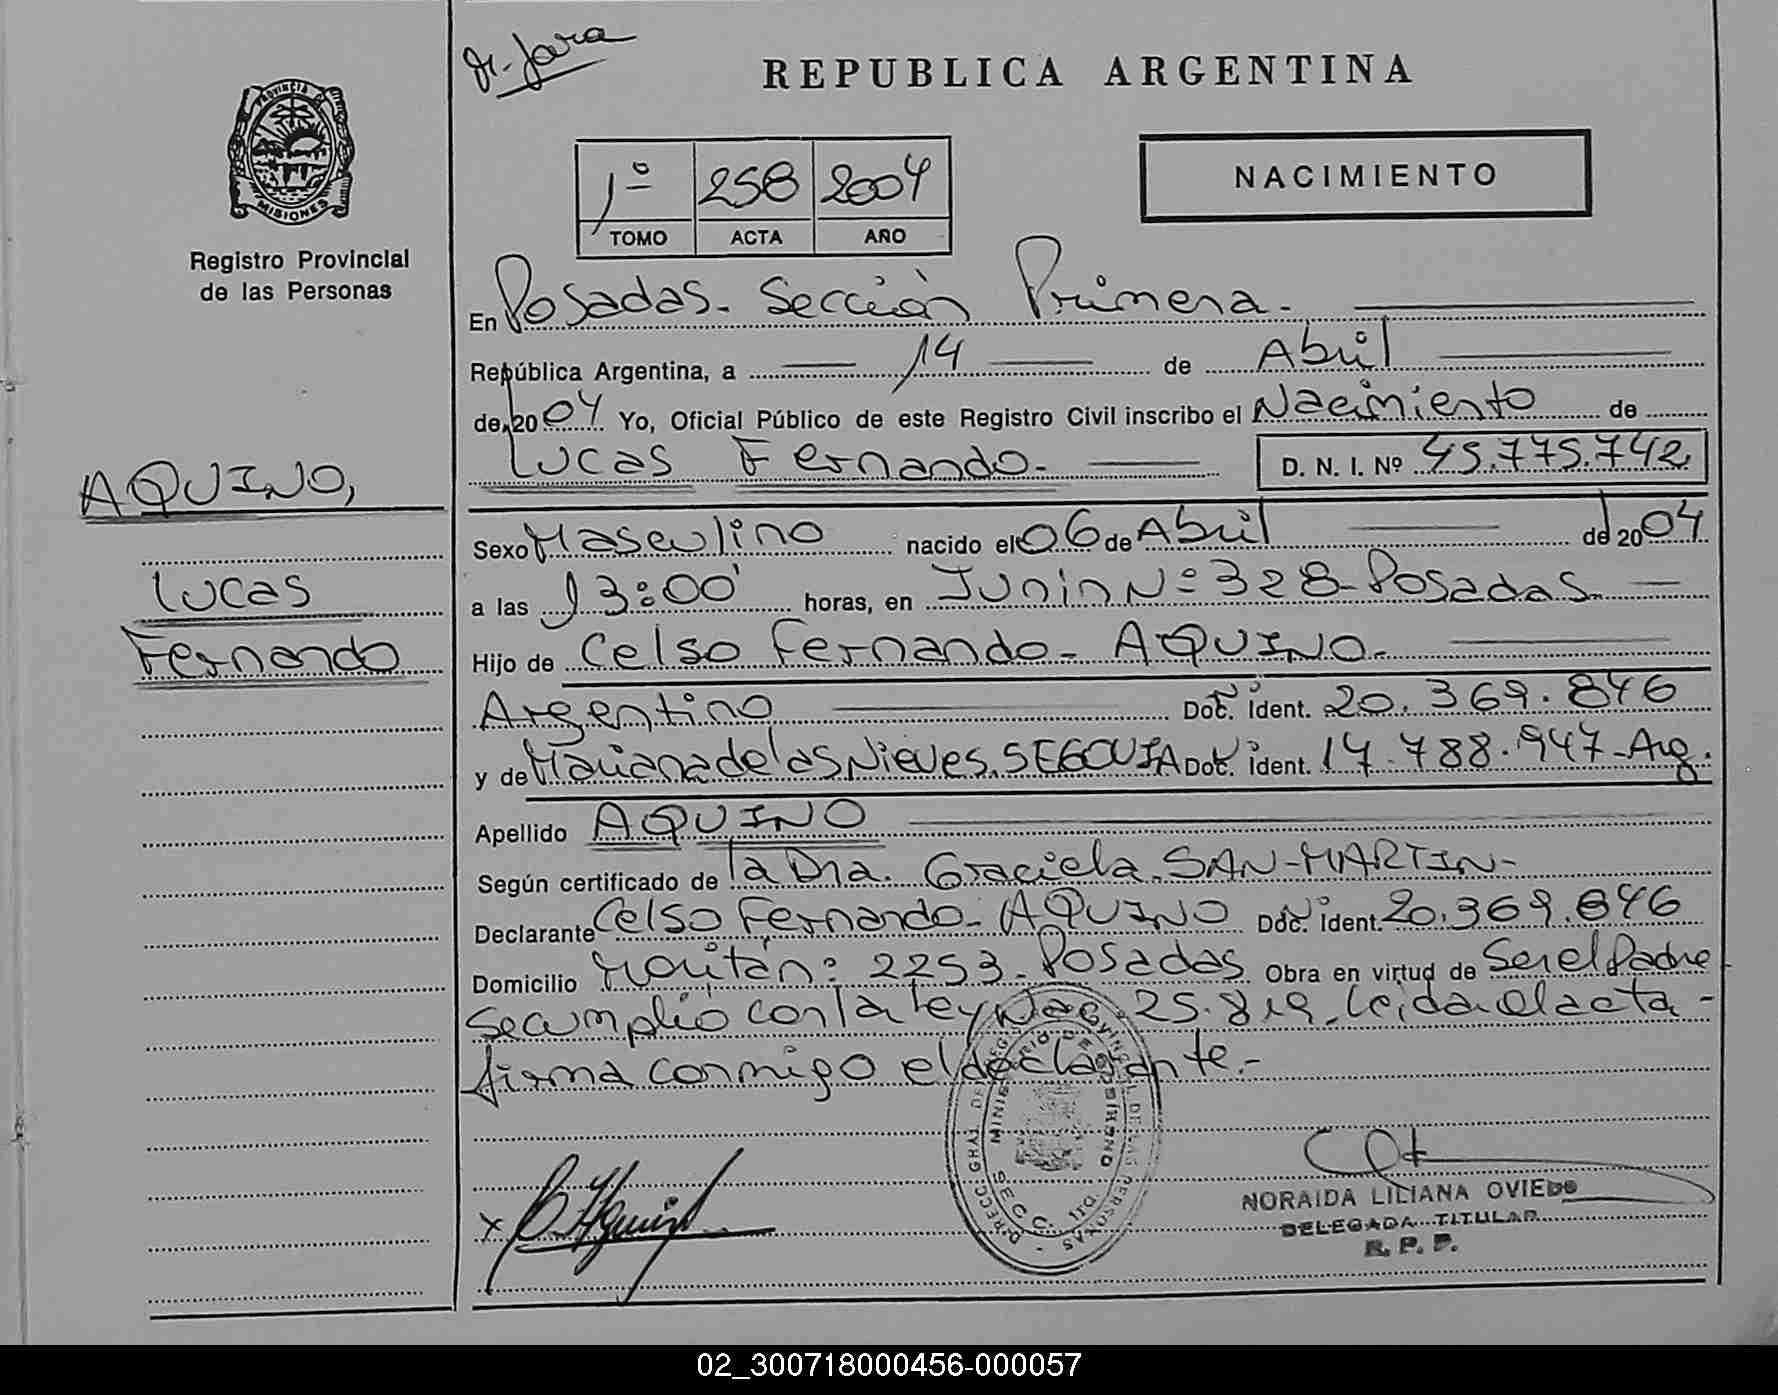 Dr. Jara
REPUBLICA ARGENTINA
PROVINCIA DE
MISIONES
Registro Provincial
de las Personas
1º 258 2004
TOMO ACTA AÑO
NACIMIENTO
En Posadas. Sección Primera.
República Argentina, a 14 de Abril
de 2004 Yo, Oficial Público de este Registro Civil inscribo el Nacimiento de
Lucas Fernando. D. N. I. Nº 45.775.742
AQUINO,
Lucas
Fernando
Sexo Masculino nacido el 06 de Abril de 2004
a las 13:00' horas, en Junin Nº 328 - Posadas.
Hijo de Celso Fernando - AQUINO.
Argentino Doc. ident. 20.369.846
y de Mariana de las Nieves. SEGOVIA Doc. ident. 17.788.947 - Arg.
Apellido AQUINO
Según certificado de la Dra. Graciela. SAN-MARTIN-
Declarante Celso Fernando - AQUINO Doc. ident. 20.369.846
Domicilio 2253 - Posadas. Obra en virtud de Ser el Padre
Se cumplió con la ley Nac. 25.819. Leida el acta -
firma conmigo el declarante.-
NORAIDA LILIANA OVIEDO
DELEGADA TITULAR
R. P. P.
02_300718000456-000057